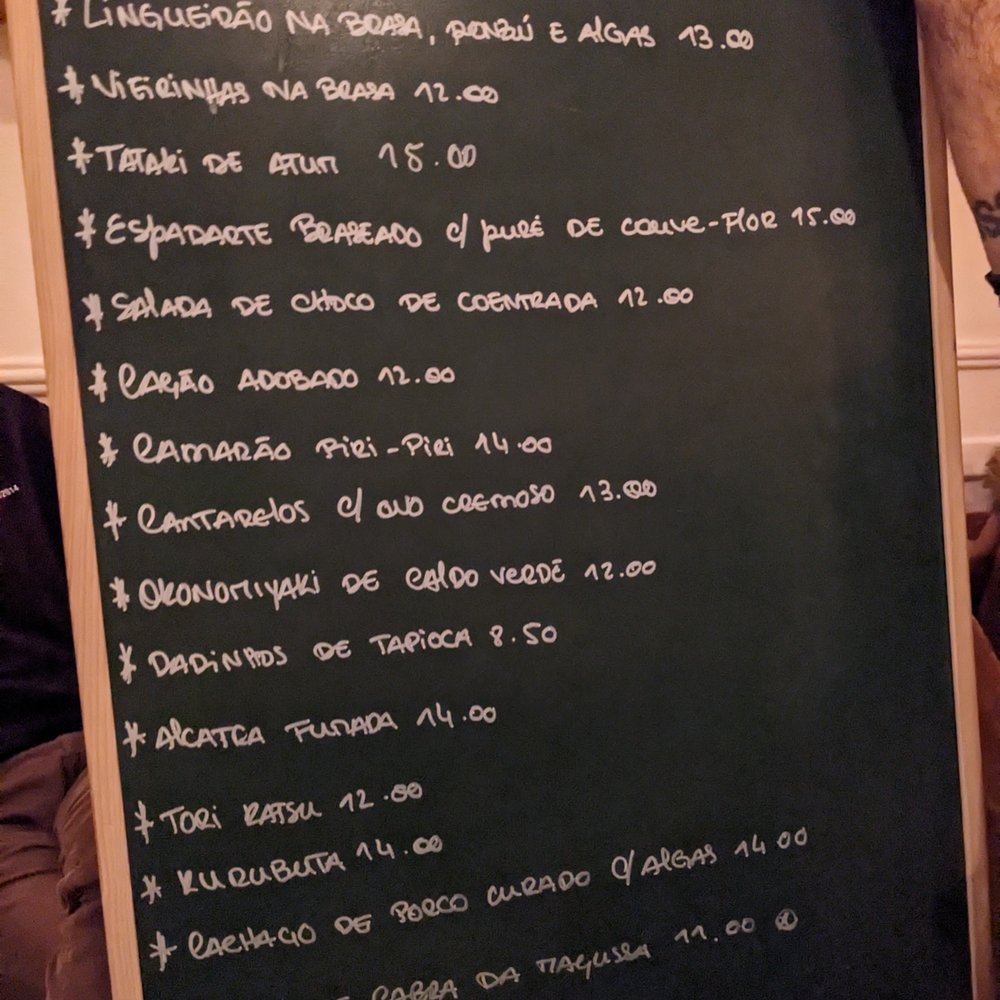 * LINGUEIRÃO NA BRASA, PONZÚ E ALGAS 13.00
* VIEIRINHAS NA BRASA 12.00
* TATAKI DE ATUM 15.00
* ESPADARTE BRASEADO c/ PURÉ DE COUVE-FLOR 15.00
* SALADA DE CHOCO DE COENTRADA 12.00
* CAÇÃO ADOBADO 12.00
* CAMARÃO PIRI-PIRI 14.00
* CANTARELOS c/ OVO CREMOSO 13.00
* OKONOMIYAKI DE CALDO VERDE 12.00
* DADINHOS DE TAPIOCA 8.50
* ALCATRA FUMADA 14.00
* TORI KATSU 12.00
* KURUBUTA 14.00
* CACHAÇO DE PORCO CURADO c/ ALGAS 14 00
CABRA DA MAÇUSSA 11.00
2014